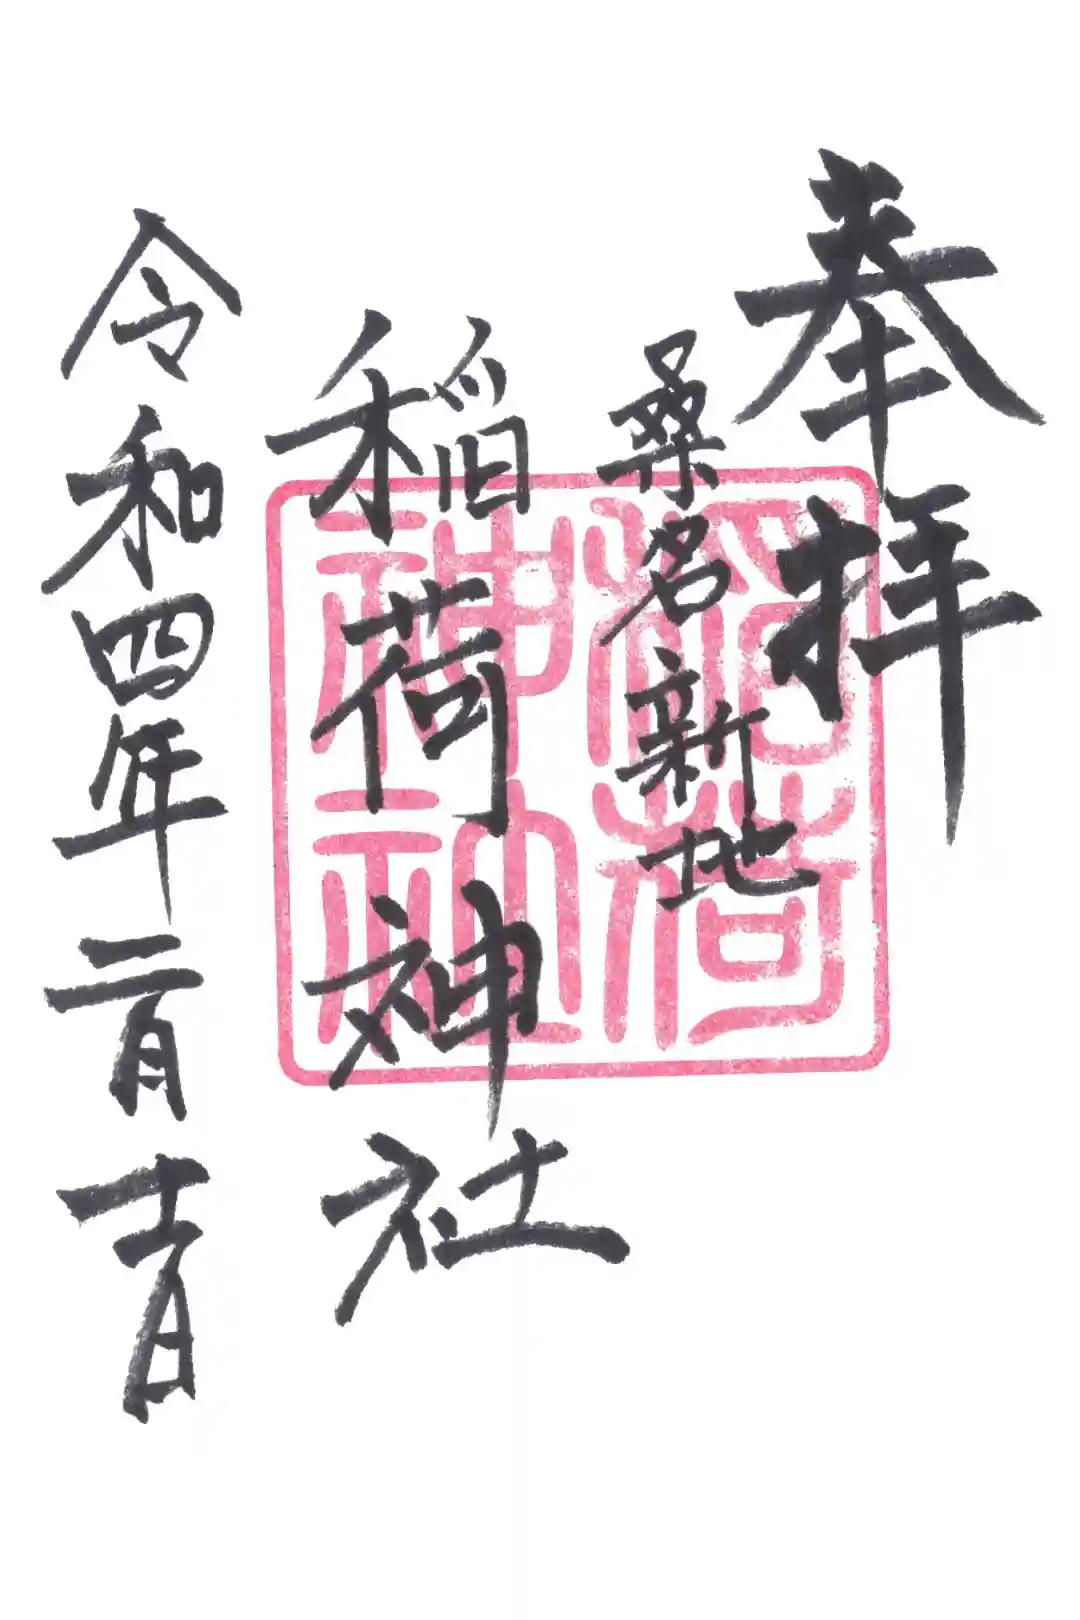 奉拝
桑名新地
稲荷神社
令和四年二月十一日
稲荷
神社